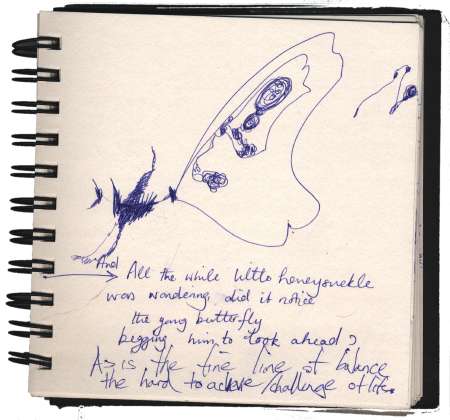 And All the while little honeysuckle
was wondering, did it notice
the young butterfly
begging him to look ahead?
As is the fine line of balance
the hard to achieve/challenge of life.